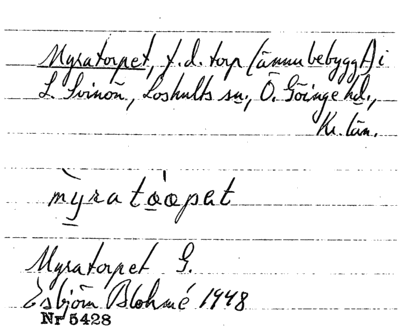 Myratorpet, f.d. torp (ännu bebyggt) i
L. Svinön, Loshults sn., Ö. Göinge hd.,
Kr. län.
mỳratɷ́ɷpət
Myratorpet G.
Esbjörn Blohmé 1948
Nr 5428